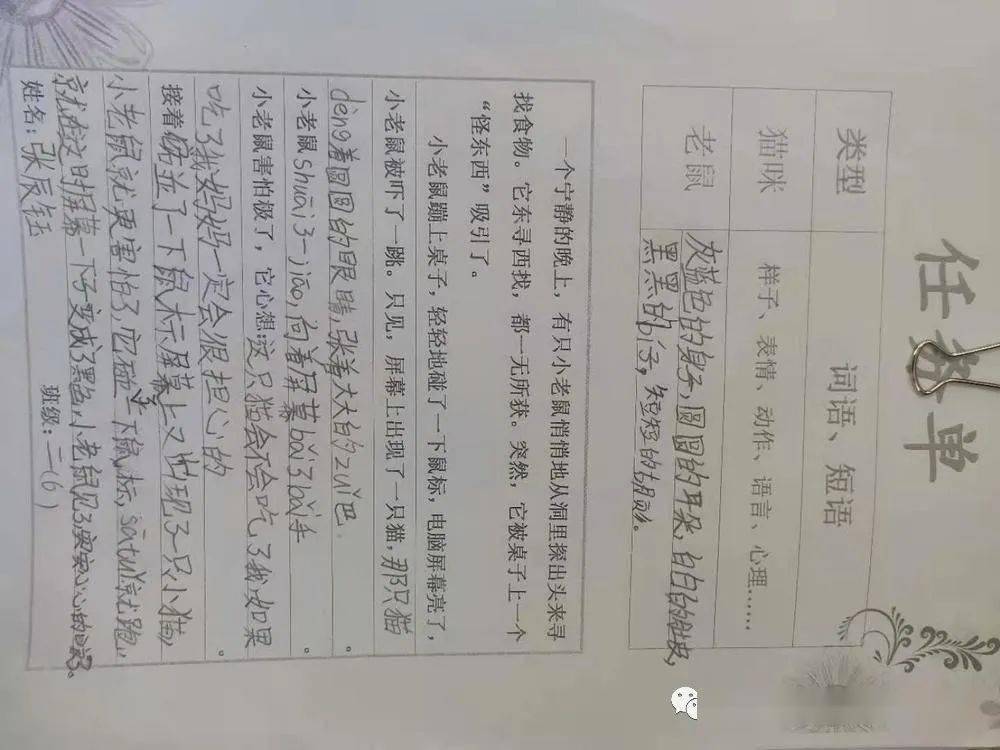 任务单
类型 词语、短语
猫咪 样子、表情、动作、语言、心理……
老鼠 灰蓝色的身子,圆圆的耳朵,白白的肚皮,
黑黑的 ,短短的胡须。
一个宁静的晚上,有只小老鼠悄悄地从洞里探出头来寻
找食物。它东寻西找,都一无所获。突然,它被桌子上一个
“怪东西”吸引了。
小老鼠蹦上桌子,轻轻地碰了一下鼠标,电脑屏幕亮了,
小老鼠被吓了一跳。只见,屏幕上出现了一只猫,那只猫
dèng着圆圆的眼睛,张着大大的zuǐ巴。
小老鼠shuāi了一jiāo,向着屏幕bǎi了bǎi手。
小老鼠害怕极了,它心想这只猫会不会吃了我如果
吃了我妈妈一定会很担心的。
接着 了一下鼠标屏幕上又出现了一只小猫,
小老鼠就更害怕了,它碰 一下鼠标, 就跑,,
这时屏幕一下子变成了黑色,小老鼠
姓名:张辰钰 班级:二(6)